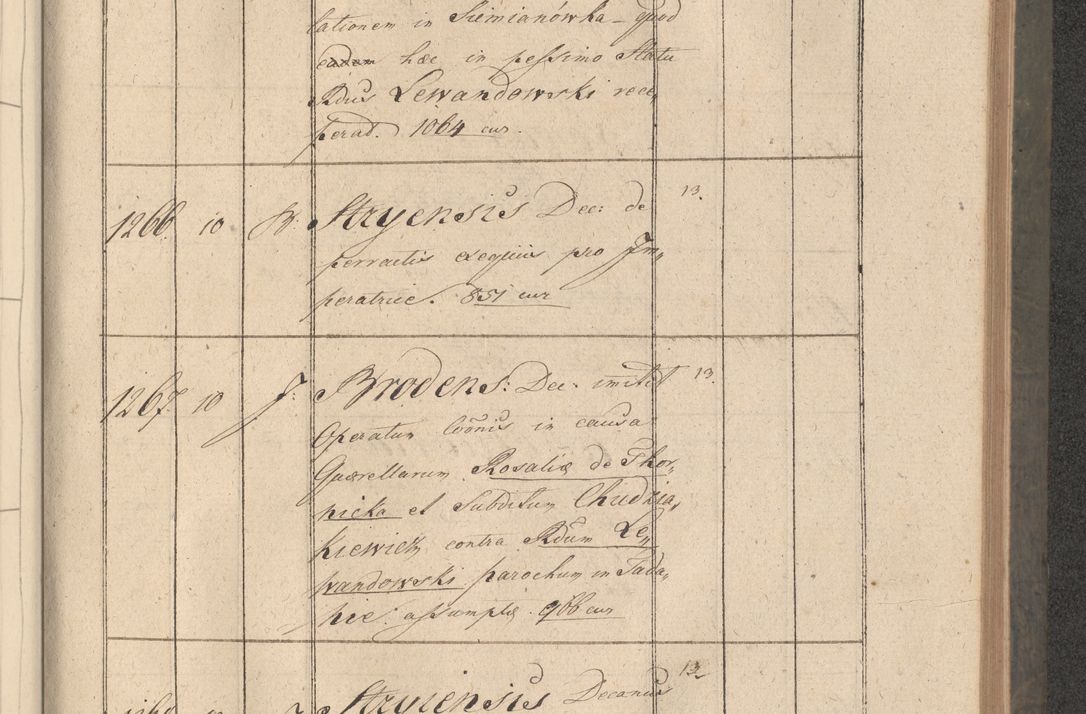 lationem in Siemianówka - quod
eadem hæc in pessimo Statu
Rdus Lewandowski rece„
perad. 1064 cur.
1266. 10 Stryensis Dec: de 13.
peractis exequiis pro Jm„
peratrice. 851 cur
1267. 10 J. Brodens: Dec: im̄itit 13.
Operatum Coōnis in causa
Quærellarum Rosaliæ de Thor„
nicka et Subditum Chudzia„
kiewicz contra Rdum Le„
wandowski parochum in Tada„
nie: assumptæ 966 cur
Stryiensis Decanus 13